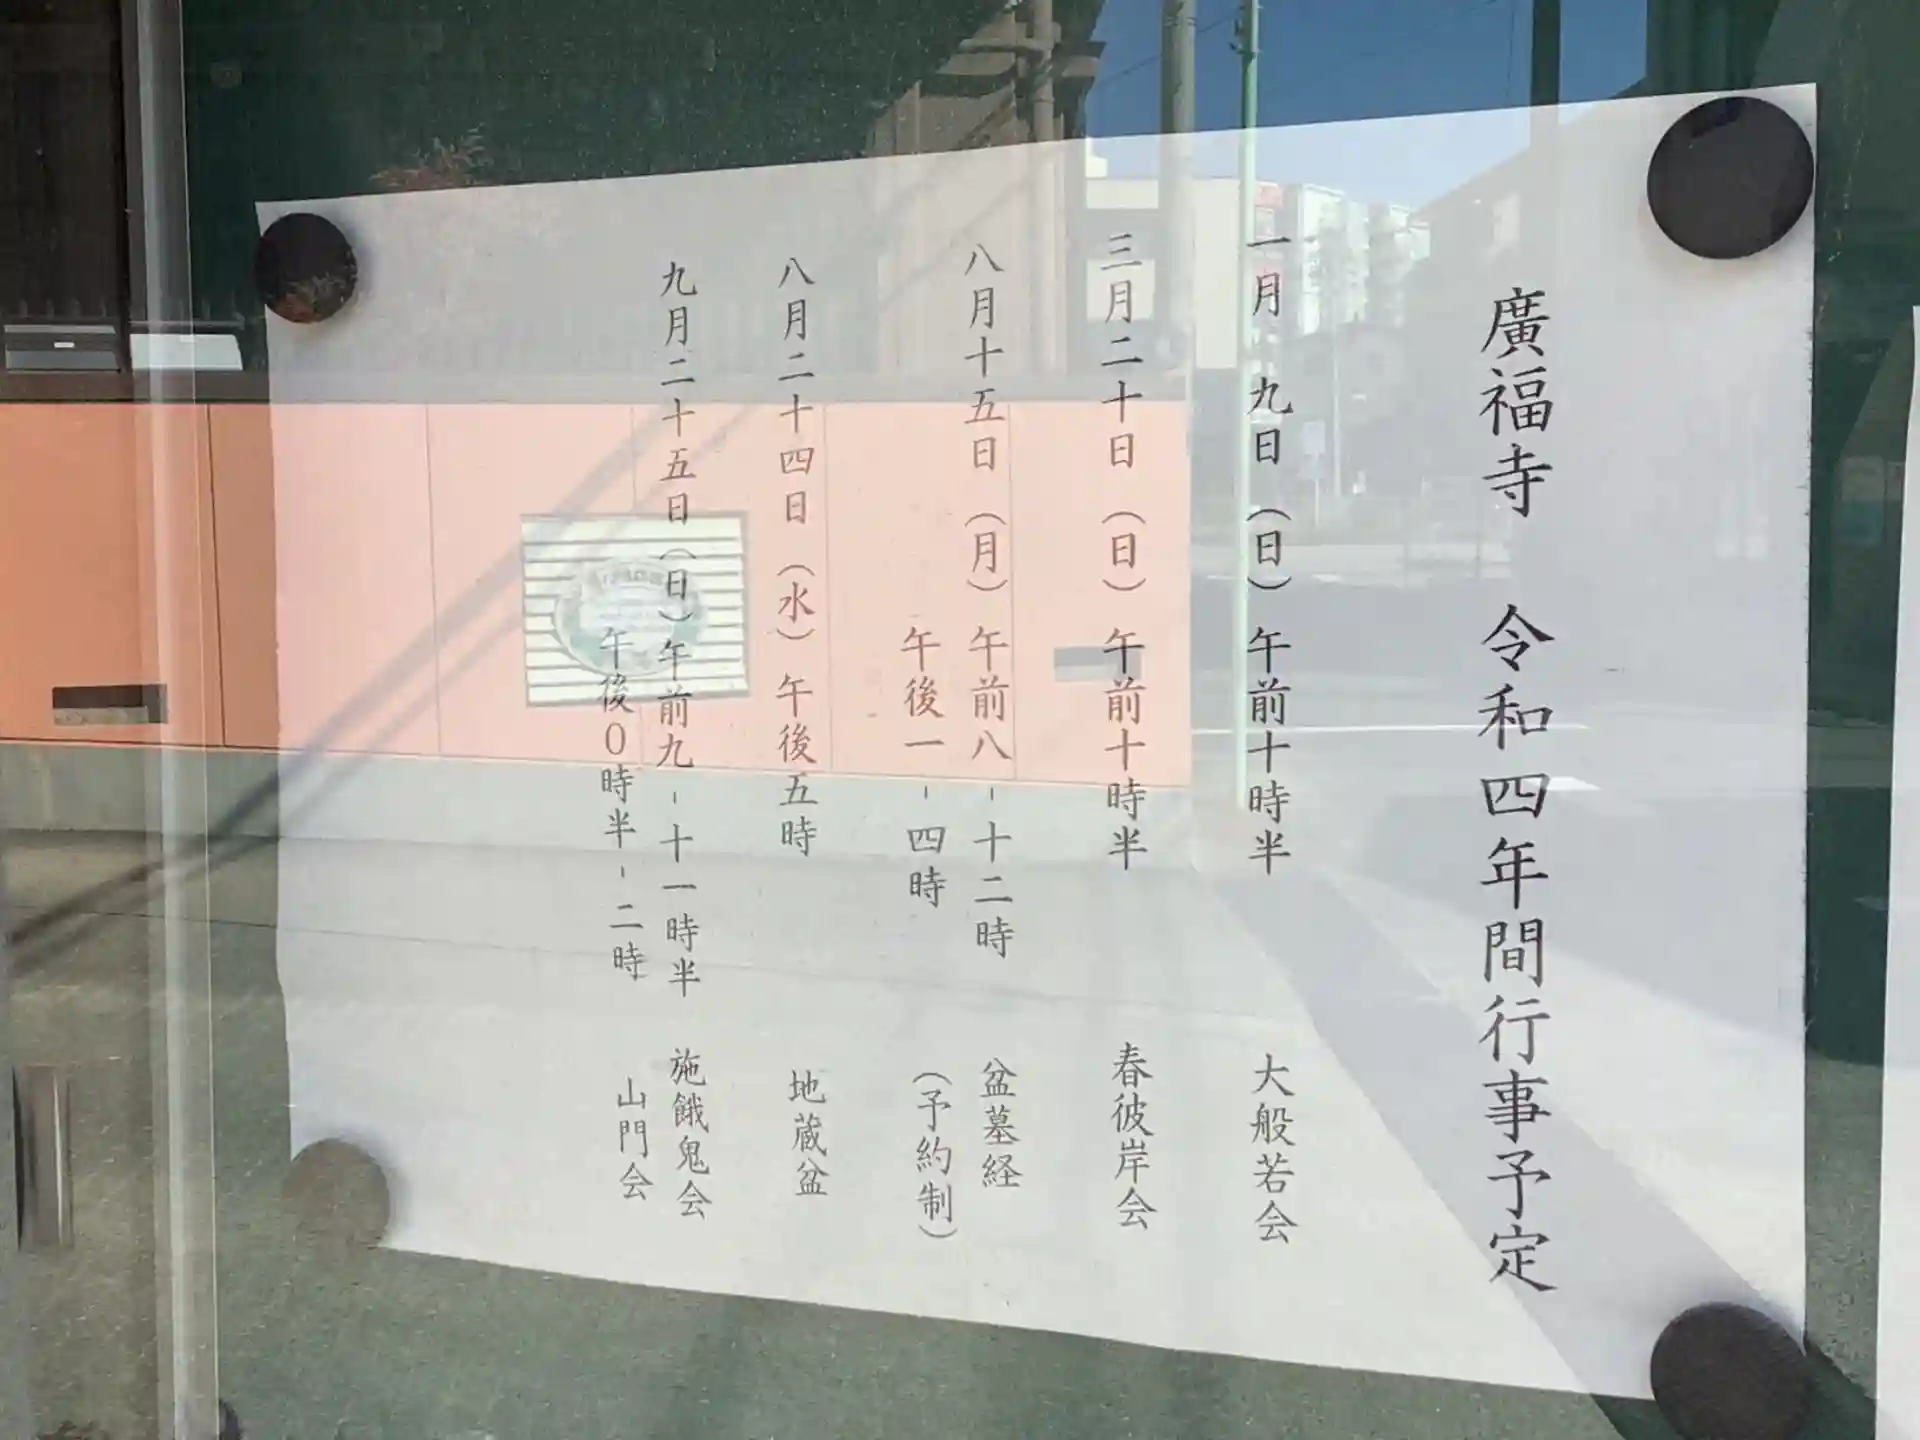 廣福寺　令和四年間行事予定
一月　九日（日）午前十時半　大般若会
三月二十日（日）午前十時半　春彼岸会
八月十五日（月）午前八-十二時　盆墓経
午後一-四時　（予約制）
八月二十四日（水）午後五時　地蔵盆
九月二十五日（日）午前九-十一時半　施餓鬼会
午後０時半-二時　山門会